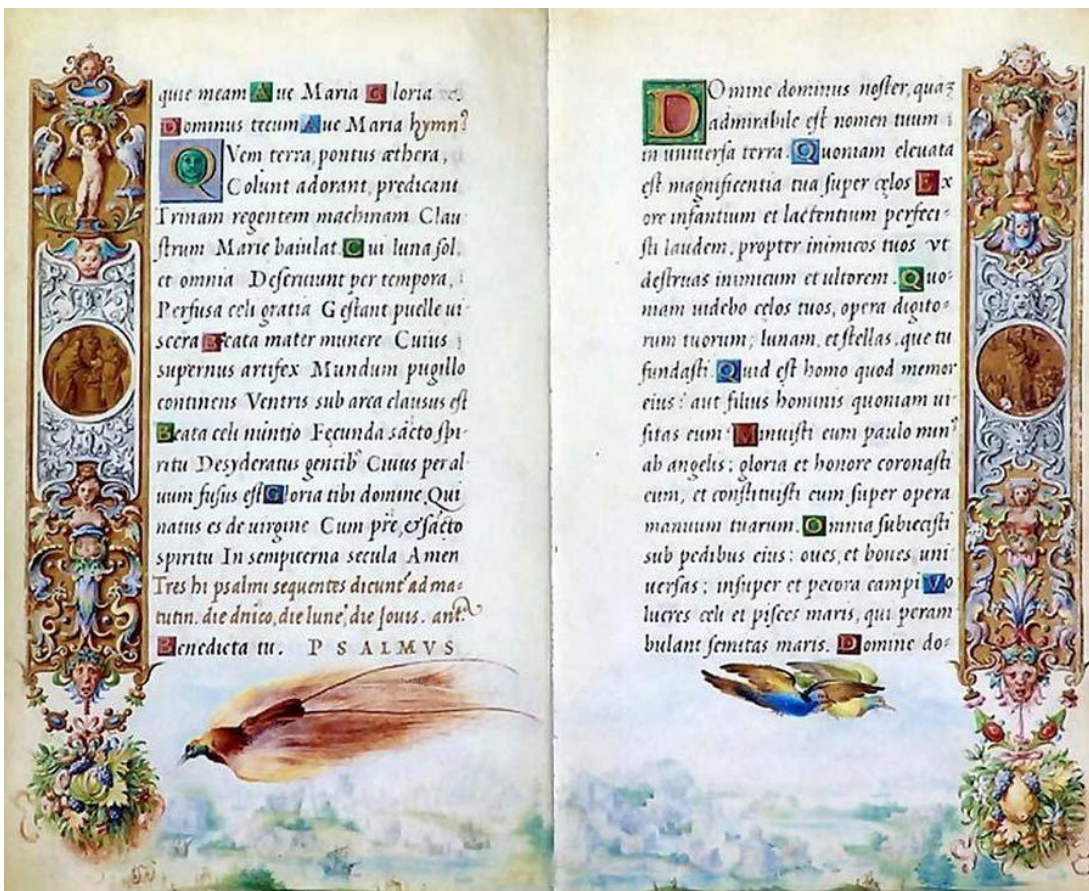 quie meam Aue Maria Gloria
Dominus tecum Aue Maria hymn⁹
QVem terra, pontus æthera,
Colunt adorant, predicant
Trinam regentem machinam Clau
ſtrum Marie baiulat. Cui luna ſol,
et omnia Deſeruiunt per tempora,
Perfuſa celi gratia Geſtant puelle ui
ſcera Beata mater munere Cuius
ſupernus artifex Mundum pugillo
continens Ventris sub arca clauſus eſt
Beata celi nuntio Fęcunda sācto ſpi
ritu Deſyderatus gentib⁹ Cuius per al
uum fuſus eſt Gloria tibi domine Qui
natus es de uirgine Cum prē, & sācto
spiritu In sempiterna secula Amen
Tres hi psalmi sequentes dicunt᷑ ad ma-
tutin. die dn̄ico, die lune, die Jouis. ant.
Benedicta tu. PSALMVS
DOmine dominus noſter, quaʒ
admirabile eſt nomen tuum
in uniuerſa terra. Quoniam eleuata
eſt magnificentia tua ſuper cęlos Ex
ore infantium et lactentium perfeci-
ſti laudem, propter inimicos tuos vt
deſtruas inimicum et ultorem. Quo-
niam uidebo cęlos tuos, opera digito-
rum tuorum; lunam, et ſtellas, que tu
fundaſti. Quid eſt homo quod memor
eius: aut filius hominis quoniam ui-
ſitas eum: Minuiſti eum paulo min⁹
ab angelis; gloria et honore coronaſti
eum, et conſtituiſti eum ſuper opera
manuum tuarum. Omnia ſubieciſti
sub pedibus eius: oues, et boues uni
uerſas; inſuper et pecora campi Vo
lucres celi et piſces maris, qui peram
bulant ſemitas maris. Domine do-